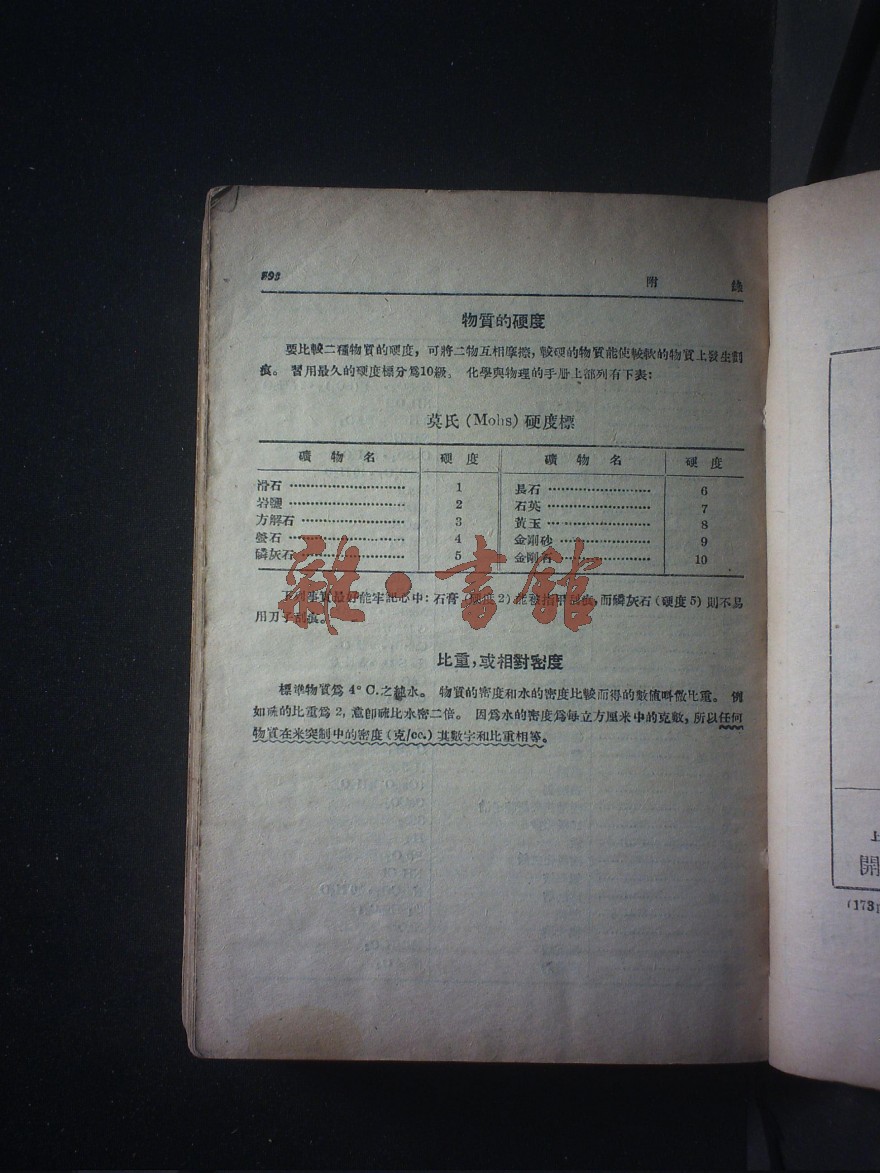 附 錄
物質的硬度
要比較二種物質的硬度，可將二物互相摩擦，較硬的物質能使較軟的物質上發生劃
痕。 習用最久的硬度標分爲10級。 化學與物理的手册上都列有下表：
莫氏 (Mohs) 硬度標
礦 物 名 硬 度 礦 物 名 硬 度
滑石 1 長石 6
岩鹽 2 石英 7
方解石 3 黃玉 8
螢石 4 金剛砂 9
磷灰石 5 金剛石 10
雜·書館
下列事實最好能牢記心中：石膏 (硬度 2) 能被指甲刮痕，而磷灰石 (硬度 5) 則不易
用刀子刮痕。
比重，或相對密度
標準物質爲 4° C. 之純水。 物質的密度和水的密度比較而得的數值叫做比重。 例
如硫的比重爲 2，意卽硫比水密二倍。 因爲水的密度爲每立方厘米中的克數，所以任何
物質在米突制中的密度 (克/cc.) 其數字和比重相等。
上
開
(173